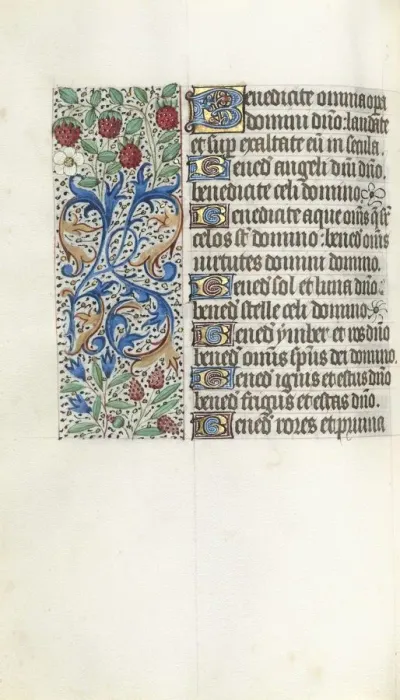 Benedicite omnia opa
domini dño: laudate
et sup exaltate eũ in secula.
Bened angeli dñi dño.
benedicite celi domino.
Benedicite aque om̃s q̃ sr̃
celos st̃ domino: bened om̃s
uirtutes domini domino.
Bened sol et luna dño:
bened stelle celi domino.
Bened ymber et ros dño
bened om̃is sp̃us dei domino.
Bened ignis et estus dño
bened frigus et estas dño.
Bened rores et pruina